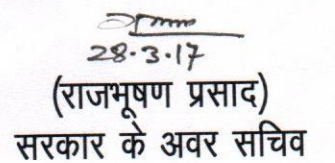 28.3.17
(राजभूषण प्रसाद)
सरकार के अवर सचिव